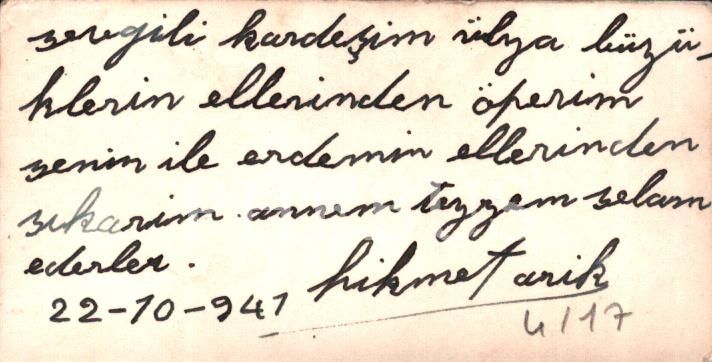 sevgili kardeşim ülya büyü-
klerin ellerinden öperim
senin ile erdemin ellerinden
sıkarim annem teyzem selam
ederler.
22-10-941 hikmet arik
4/17